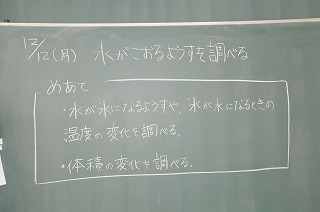 12/12(月) 水がこおるようすを調べる
めあて
・水が氷になるようすや、氷が水になるときの
温度の変化を調べる。
・体積の変化を調べる。